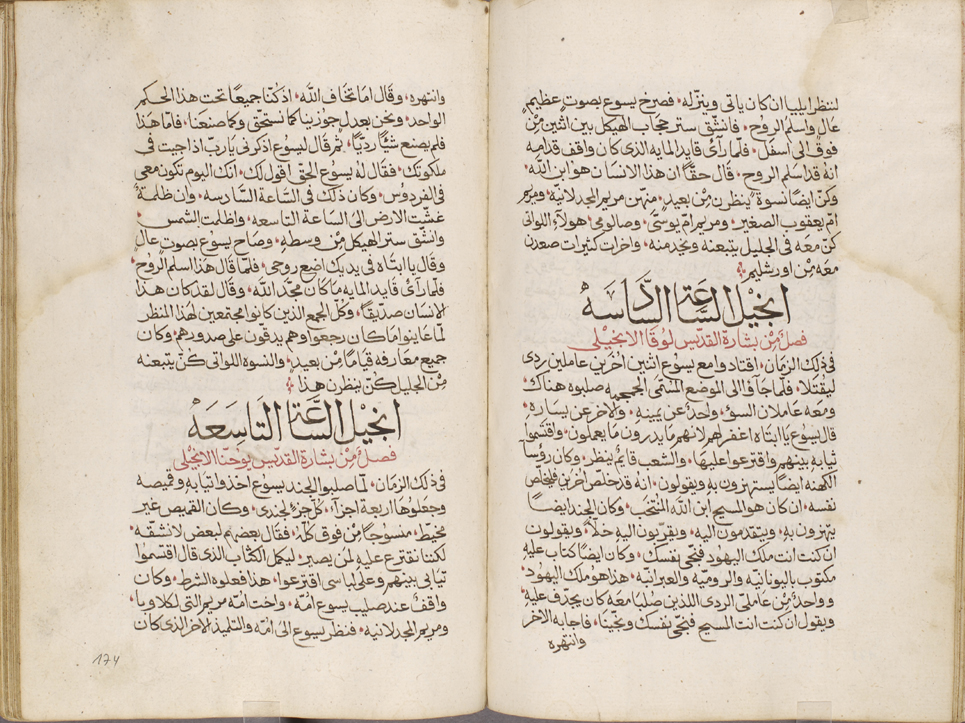 لننظر ايليا ان كان ياتي وينزله۰ فصرخ يسوع بصوت عظيم
عال واسلم الروح۰ فانشق ستر حجاب الهيكل بين اثنين من
فوق الى اسفل۰ فلما رأى قايد المايه الذي كان واقف قدامه
انه قد اسلم الروح۰ قال حقًا ان هذا الانسان هو ابن الله۰
وكن ايضًا نسوة ينظرن من بعيد۰ منهن مريم المجدلانيه۰ ومريم
ام يعقوب الصغير۰ ومريم ام يوسى۰ وصالومي هولآء اللواتي
كن معه في الجليل يتبعنه ويخدمنه۰ واخرات كثيرات صعدن
معه من اورشليم
انجيل السّاعة السّادسه
فصل من بشارة القديس لوقا الانجيلي
في ذلك الزمان۰ اقتادوا مع يسوع اثنين اخرين عاملين ردي
ليقتلا۰ فلما جاوا الى الموضع المسمى الجمجمه صلبوه هناك۰
ومعه عاملان السؤ۰ واحد عن يمينه۰ والاخر عن يساره۰
قال يسوع يا ابتاه اغفر لهم لانهم ما يدرون ما يعملون۰ واقتسموا
ثيابه بينهم واقترعوا عليها۰ والشعب قايم ينظر۰ وكان روسا
الكهنه ايضًا يستهزون به ويقولون۰ انه قد خلص اخرين فليخلص
نفسه۰ ان كان هو المسيح ابن الله المنتخب۰ وكان الجند ايضًا
يهزون به۰ ويتقدمون اليه۰ ويقربون اليه خلًا۰ ويقولون
ان كنت انت ملك اليهود فنجي نفسك۰ وكان ايضًا كتاب عليه
مكتوب باليونانيه والروميه والعبرانيه۰ هذا هو ملك اليهود۰
وواحد من عاملي الردى اللذين صلبا معه كان يجدف عليه۰
ويقول ان كنت انت المسيح فنجي نفسك ونجينا۰ فاجابه الاخر
وانتهره
وانتهره۰ وقال اما تخاف الله۰ اذ كنا جميعًا تحت هذا الحكم
الواحد۰ ونحن بعدل جوزينا كما نستحق وكما صنعنا۰ فاما هذا
فلم يصنع شيًا رديًا۰ ثم قال ليسوع اذكرني يا رب اذا جيت في
ملكوتك۰ فقال له يسوع الحق اقول لك۰ انك اليوم تكون معي
في الفردوس۰ وكان ذلك في السّاعة السّادسه۰ وان ظلمة
غشت الارض الى السّاعة التاسعه۰ واظلمت الشمس
وانشق ستر الهيكل من وسطه۰ وصاح يسوع بصوت عال
وقال يا ابتاه في يديك اضع روحي۰ فلما قال هذا اسلم الروح۰
فلما رأى قايد المايه ما كان مجّد الله۰ وقال لقد كان هذا
الانسان صديقًا۰ وكل الجمع الذين كانوا مجتمعين لهذا المنظر
لما عاينوا ما كان رجعوا وهم يدقون على صدورهم۰ وكان
جميع معارفه قيامًا من بعيد۰ والنسوه اللواتي كن يتبعنه
من الجليل كن ينظرن هذا
انجيل السّاعة التاسعه
فصل من بشارة القديس يوحنا الانجيلي
في ذلك الزمان۰ لما صلبوا الجند يسوع اخذوا ثيابه وقميصه
وجعلوها اربعة اجزآء۰ كل جز لجندي۰ وكان القميص غير
مخيط۰ منسوجًا من فوق كله۰ فقال بعضهم لبعض لا نشقه
لكننا نقترع عليه لمن يصير۰ ليكمل الكتاب الذي قال اقتسموا
ثيابي بينهم وعلى لباسي اقترعوا۰ هذا فعلوه الشرط۰ وكان
واقف عند صليب يسوع امه۰ واخت امه مريم التي لكلاوبا۰
ومريم المجدلانيه۰ فنظر يسوع الى امه والتلميذ الاخر الذي كان
174